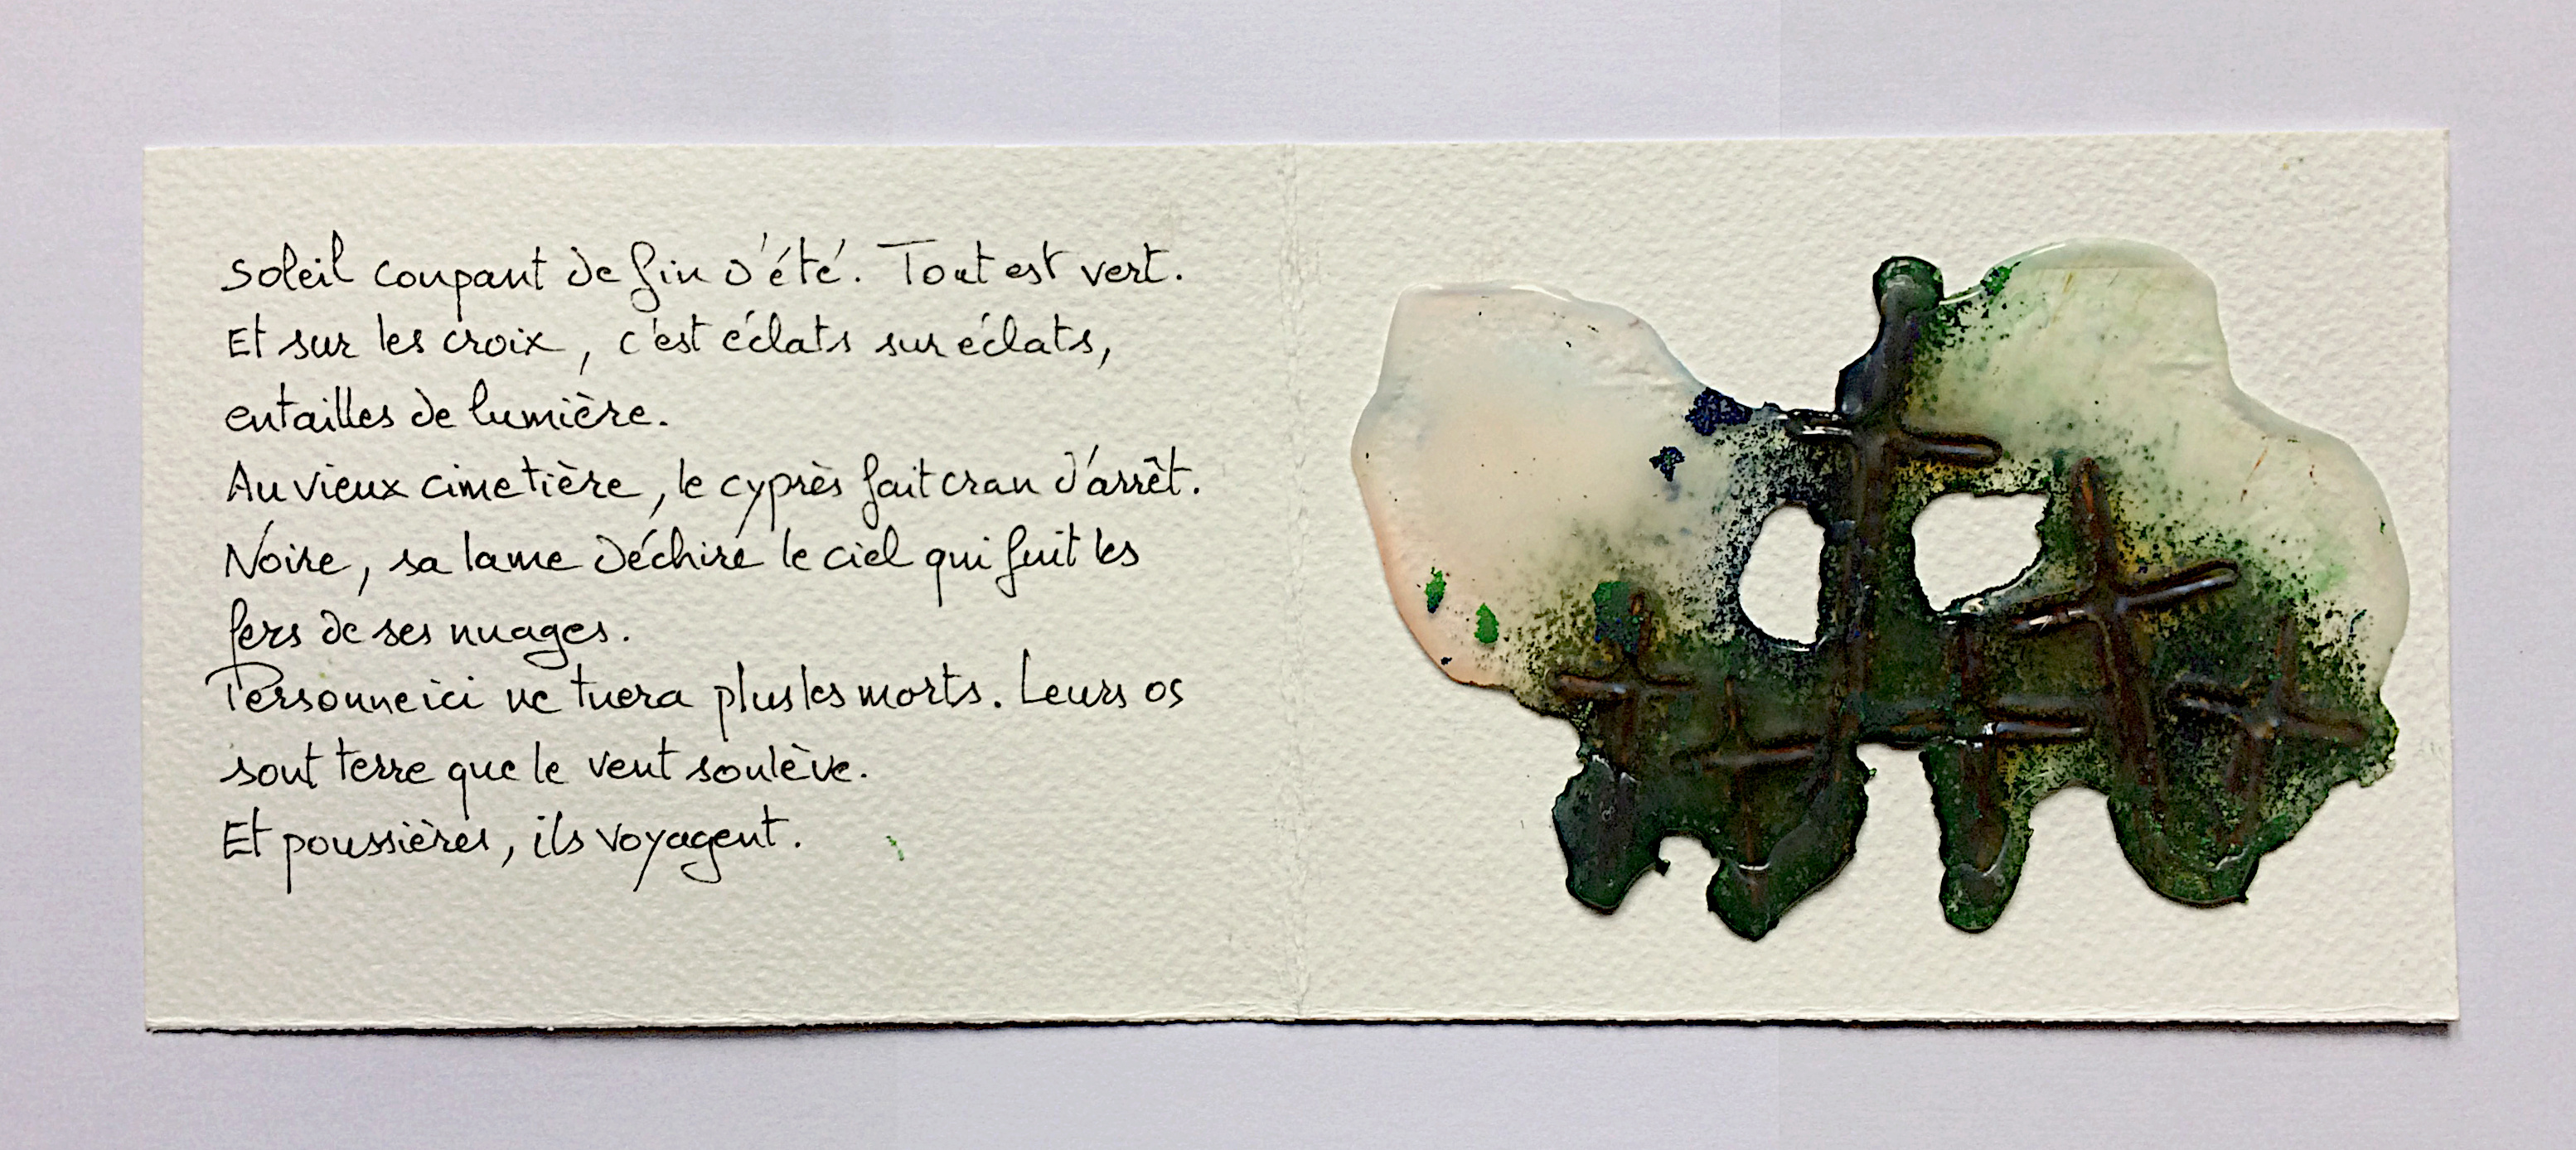 Soleil coupant de fin d'été. Tout est vert.
Et sur les croix, c'est éclats sur éclats,
entailles de lumière.
Au vieux cimetière, le cyprès fait cran d'arrêt.
Noire, sa lame déchire le ciel qui fuit les
fers de ses nuages.
Personne ici ne tuera plus les morts. Leurs os
sont terre que le vent soulève.
Et poussières, ils voyagent.